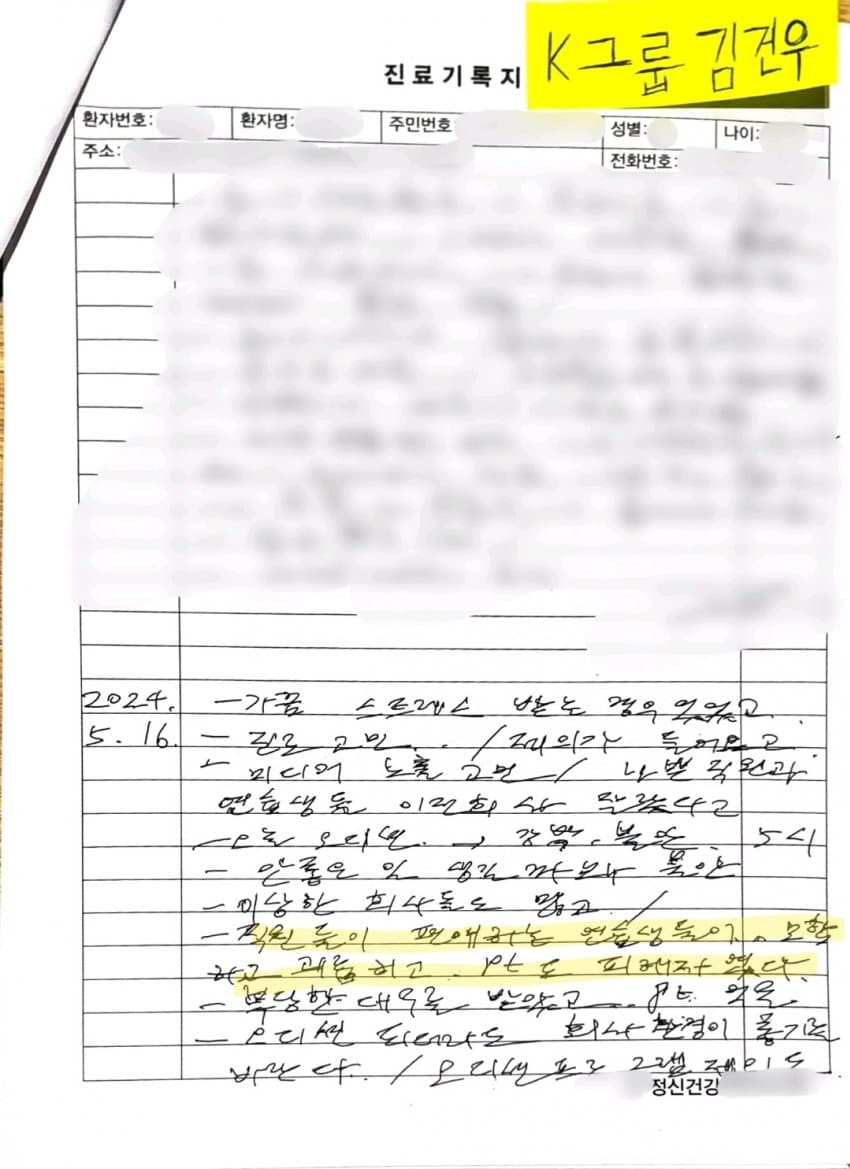 K그룹 김건우
진료기록지
환자번호: 환자명: 주민번호 성별: 나이:
주소: 전화번호:
2024. - 가끔 스트레스 받는 경우 있었고.
5. 16. - 진로 고민.. / 제의가 들어오고.
- 미디어 노출 고민 / 나쁜 직원과
연습생들 이전회사 잘랐다고
- 오늘 오디션. → 강박, 불안. 5시
- 안좋은 일 생길까보아 불안
- 이상한 회사들도 많고 /
- 직원들이 편애하는 연습생들이. 모함
하고 괴롭히고. pt도 피해자였다.
- 부당한 대우를 받았고.. pt. 억울
- 오디션 되더라도 회사 환경이 좋기를
바란다. / 오디션 프로그램
정신건강